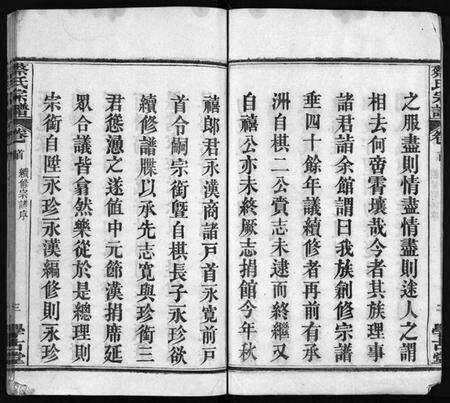 之服盡則情盡情盡則途人之謂
相去何啻霄壤哉今者其族理事
諸君詣余館謂曰我族創修宗譜
垂四十餘年議續修者再前有承
洲自棋二公賫志未逮而終繼又
自禧公亦未終厥志捐館今年秋
禧郎君永漢商諸戸首永寬前戸
首令嗣宗銜曁自棋長子永珍欲
續修譜牒以承先志寬與珍銜三
君慫慂之遂値中元節漢捐席延
眾合議皆翕然樂從於是總理則
宗銜自陞永珍永漢編修則永珍
蔡氏宗譜
卷首
續修宗譜序
三
學古堂
蔡氏宗譜